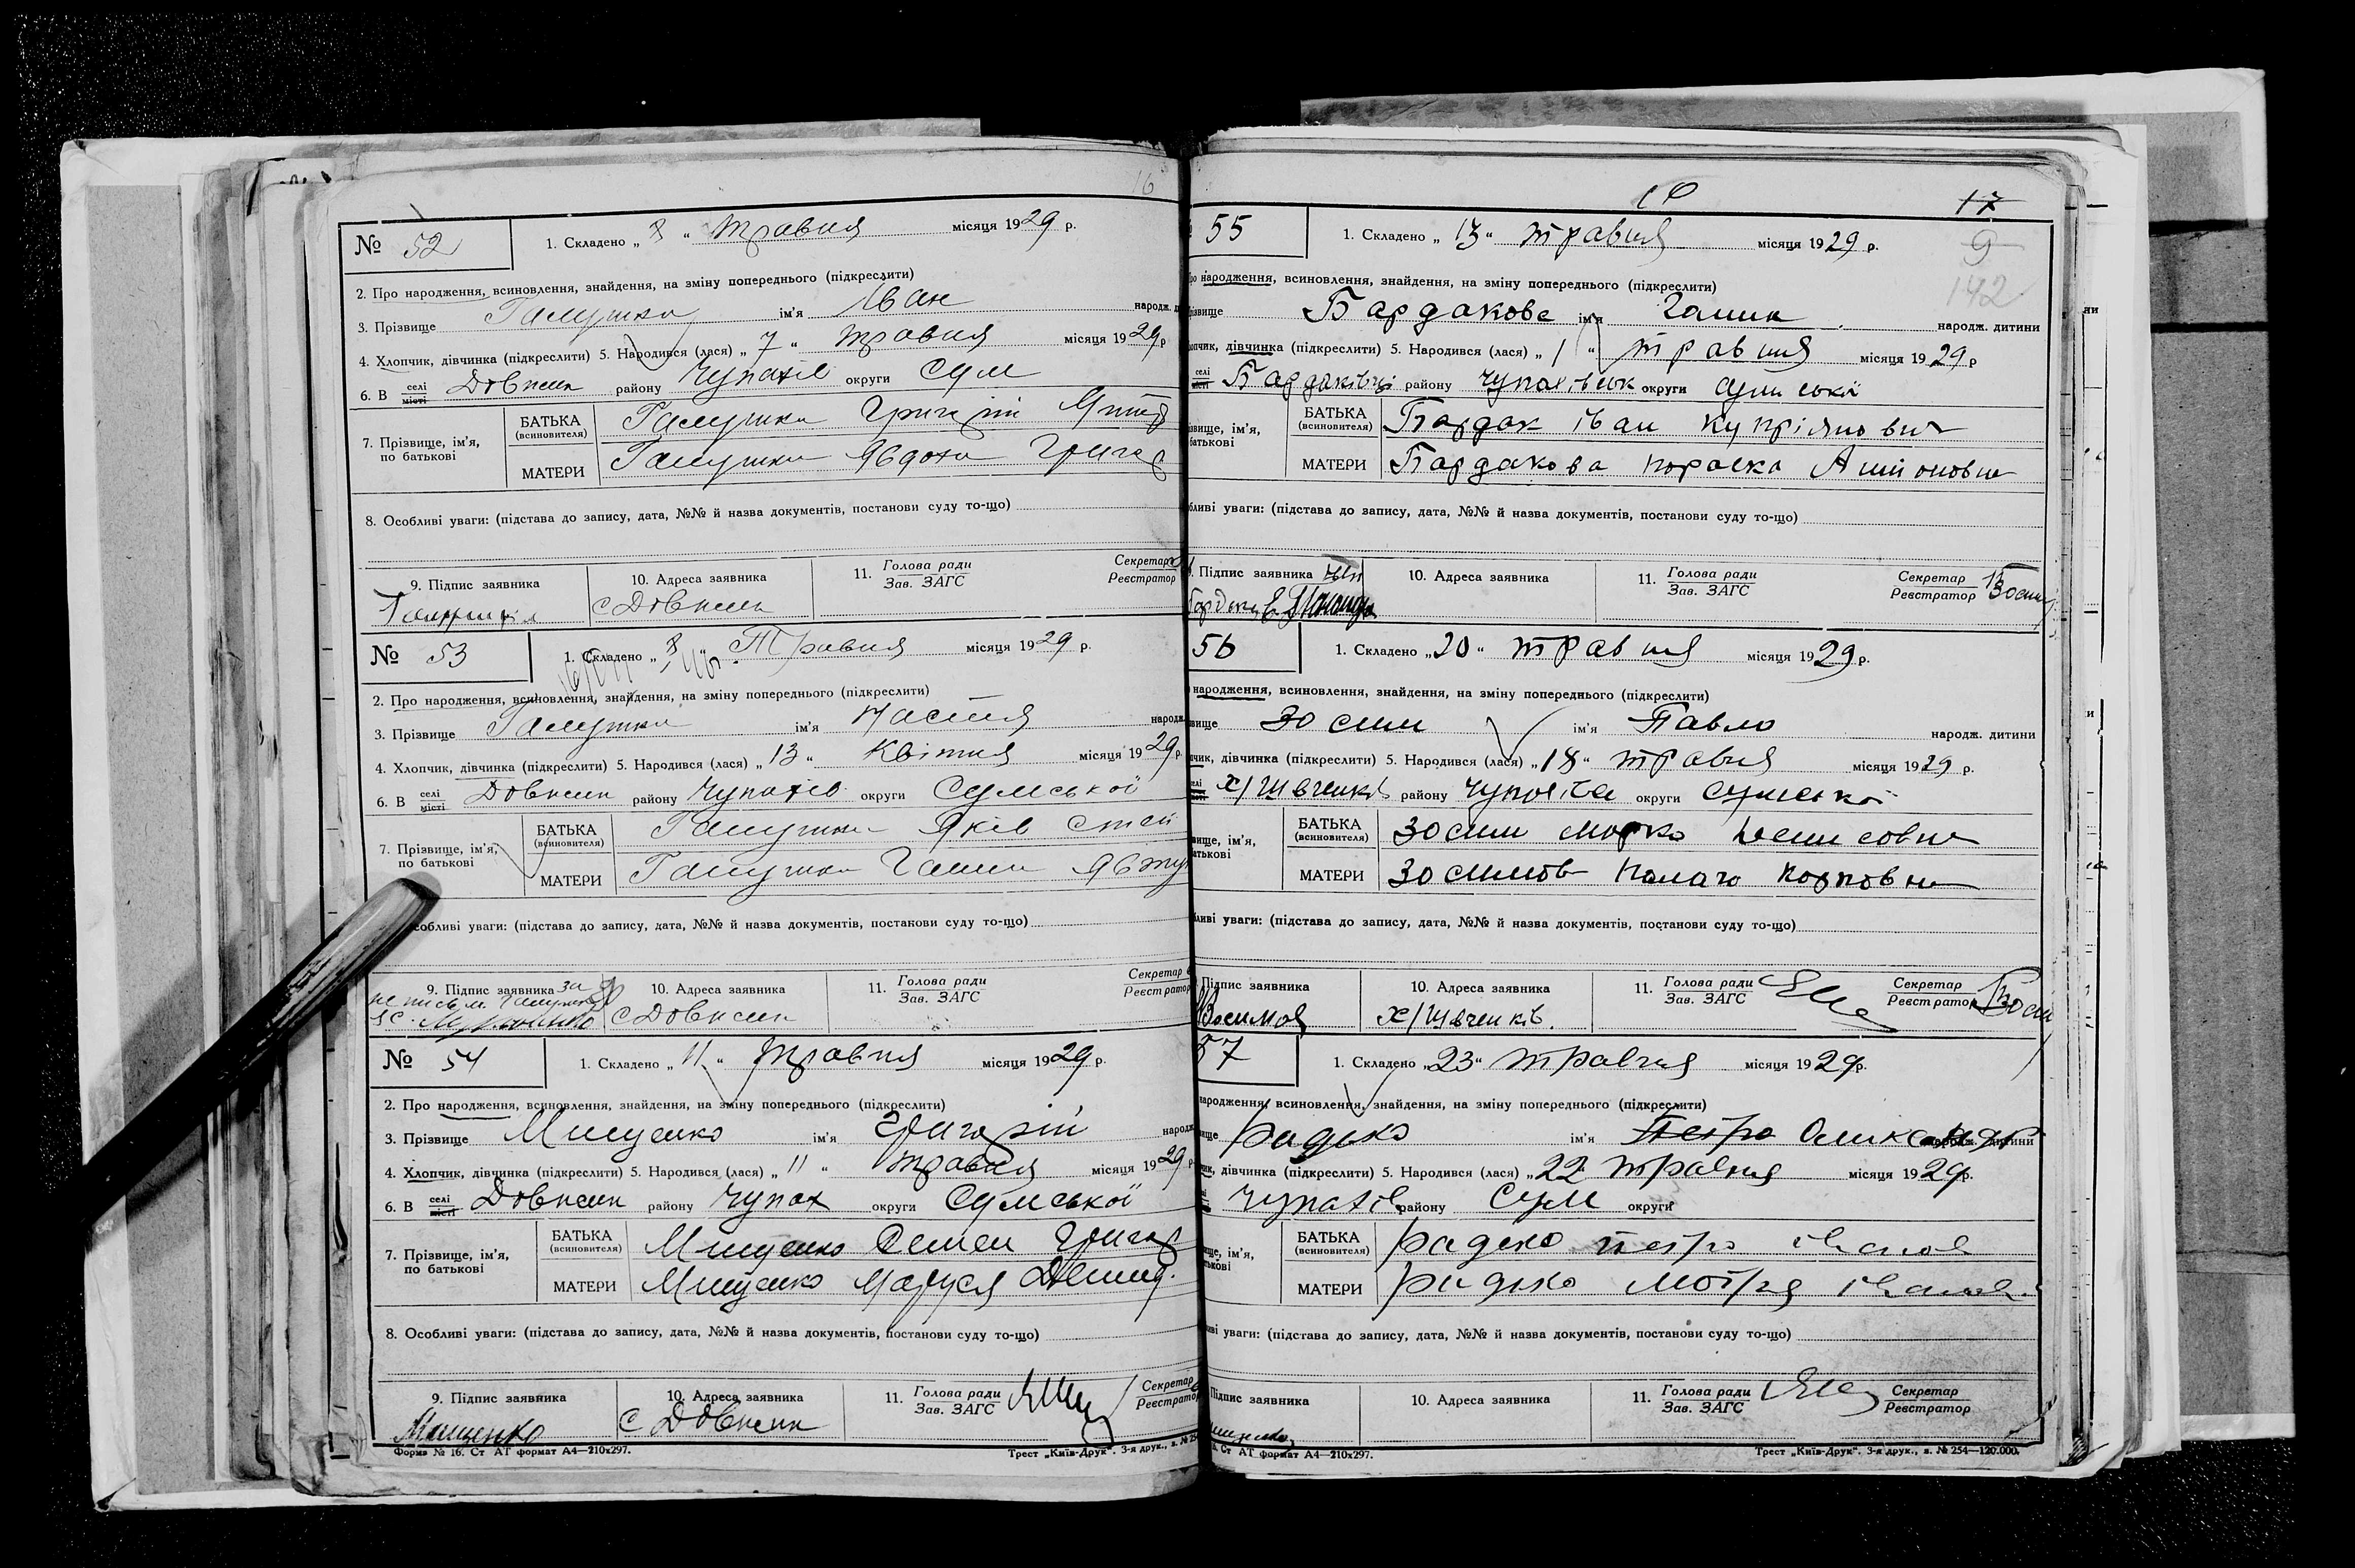 16
№ 52
1. Складено „ 8 “ травня місяця 1929 р.
2. Про народження, всиновлення, знайдення, на зміну попереднього (підкреслити)
3. Прізвище Галушка ім'я Іван народж.
4. Хлопчик, дівчинка (підкреслити) 5. Народився (лася) „ 7 “ травня місяця 1929 р
6. В селі місті району Чупахів округи Сум
7. Прізвище, ім'я, по батькові
БАТЬКА (всиновителя) Галушка Григорій
МАТЕРИ Галушка Явдоха Григор
8. Особливі уваги: (підстава до запису, дата, №№ й назва документів, постанови суду то-що)
9. Підпис заявника 10. Адреса заявника 11. Голова ради Зав. ЗАГС Секретар Реєстратор
№ 53
1. Складено „ 8 “ Травня місяця 1929 р.
2. Про народження, всиновлення, знайдення, на зміну попереднього (підкреслити)
3. Прізвище Галушка ім'я Настя народж.
4. Хлопчик, дівчинка (підкреслити) 5. Народився (лася) „ 13 “ Квітня місяця 1929 р.
6. В селі місті району Чупахів округи Сумської
7. Прізвище, ім'я, по батькові
БАТЬКА (всиновителя) Галушка Яків Степ
МАТЕРИ Галушка Ганна Явту
Особливі уваги: (підстава до запису, дата, №№ й назва документів, постанови суду то-що)
9. Підпис заявника за 10. Адреса заявника 11. Голова ради Зав. ЗАГС Секретар Реєстратор
неписьм. Галушка
№ 54
1. Складено „ 11 “ травня місяця 1929 р.
2. Про народження, всиновлення, знайдення, на зміну попереднього (підкреслити)
3. Прізвище Мищенко ім'я Григорій народж.
4. Хлопчик, дівчинка (підкреслити) 5. Народився (лася) „ 11 “ травня місяця 1929 р
6. В селі місті району Чупах округи Сумської
7. Прізвище, ім'я, по батькові
БАТЬКА (всиновителя) Мищенко Семен Григор
МАТЕРИ Мищенко Маруся Демид.
8. Особливі уваги: (підстава до запису, дата, №№ й назва документів, постанови суду то-що)
9. Підпис заявника 10. Адреса заявника 11. Голова ради Зав. ЗАГС Секретар Реєстратор
Мищенко
Форма № 16. Ст АТ формат А4—210х297. Трест „Київ-Друк“. 3-я друк., з. № 254
17
9
142
55
1. Складено „ 13 “ травня місяця 1929 р.
народження, всиновлення, знайдення, на зміну попереднього (підкреслити)
Бардакова ім'я Ганна народж. дитини
дівчинка (підкреслити) 5. Народився (лася) „ 1 “ травня місяця 1929 р
селі місті Бардаківці району Чупахівськ округи Сумської
БАТЬКА (всиновителя) Бардак Іван Купріянович
МАТЕРИ Бардакова Параска Антоновна
уваги: (підстава до запису, дата, №№ й назва документів, постанови суду то-що)
Підпис заявника 10. Адреса заявника 11. Голова ради Зав. ЗАГС Секретар Реєстратор
56
1. Складено „ 20 “ травня місяця 1929 р.
народження, всиновлення, знайдення, на зміну попереднього (підкреслити)
Зосим ім'я Павло народж. дитини
дівчинка (підкреслити) 5. Народився (лася) „ 18 “ травня місяця 1929 р.
х/Шевченків району округи Сумської
БАТЬКА (всиновителя) Зосим Марко
МАТЕРИ Карповна
уваги: (підстава до запису, дата, №№ й назва документів, постанови суду то-що)
Підпис заявника 10. Адреса заявника 11. Голова ради Зав. ЗАГС Секретар Реєстратор
х/Шевченків.
57
1. Складено „ 23 “ травня місяця 1929 р.
народження, всиновлення, знайдення, на зміну попереднього (підкреслити)
Радько ім'я Петро народж. дитини
дівчинка (підкреслити) 5. Народився (лася) „ 22 “ травня місяця 1929 р.
Чупахів району Сум округи
БАТЬКА (всиновителя) Радько Петро Іванов
МАТЕРИ Радько Мотря Іванов
уваги: (підстава до запису, дата, №№ й назва документів, постанови суду то-що)
Підпис заявника 10. Адреса заявника 11. Голова ради Зав. ЗАГС Секретар Реєстратор
Ст АТ формат А4—210х297. Трест „Київ-Друк“. 3-я друк., з. № 254—120.000.